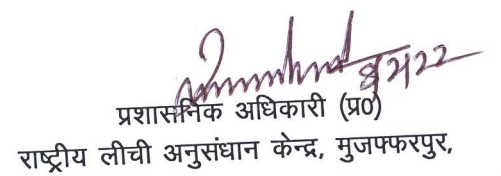 प्रशासनिक अधिकारी (प्र०)
राष्ट्रीय लीची अनुसंधान केन्द्र, मुजफ्फरपुर,